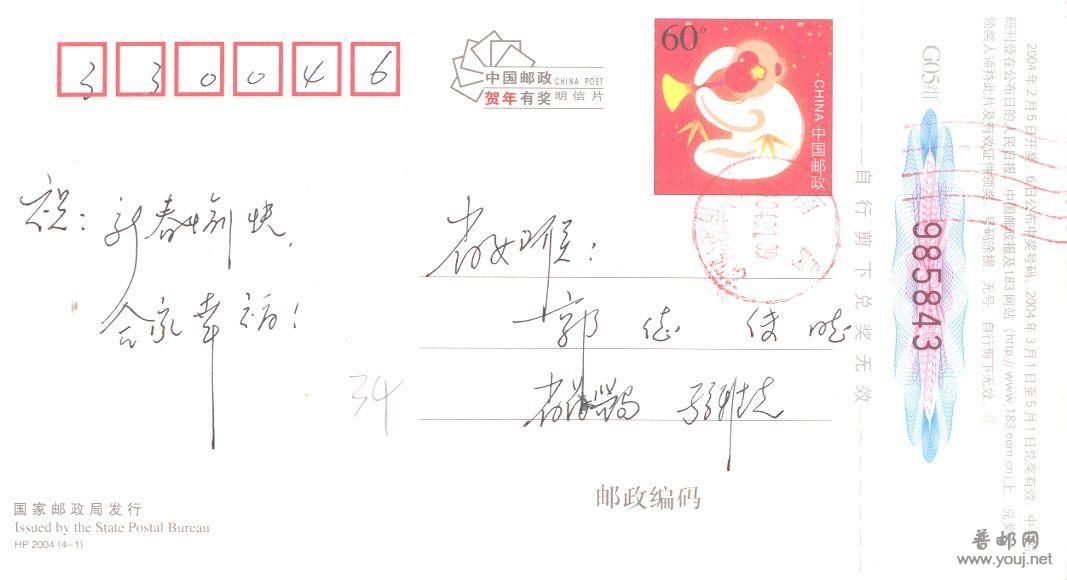 330046
中国邮政 CHINA POST
贺年有奖明信片
60分
CHINA 中国邮政
祝：新春愉快，
合家幸福！
省妇联：
郭
省
34
邮政编码
国家邮政局发行
Issued by the State Postal Bureau
HP 2004 (4-1)
自行剪下兑奖无效
G05组
985843
2004年2月5日开奖，6日公布中奖号码。2004年3月1日至5月1日兑奖有效
码刊登在公布日的人民日报、中国邮政报及183网站（http://www.183.com.cn)上
领奖人须持此片及有效证件领奖。号码涂损、无号、自行剪下无效。
普邮网
www.youj.net